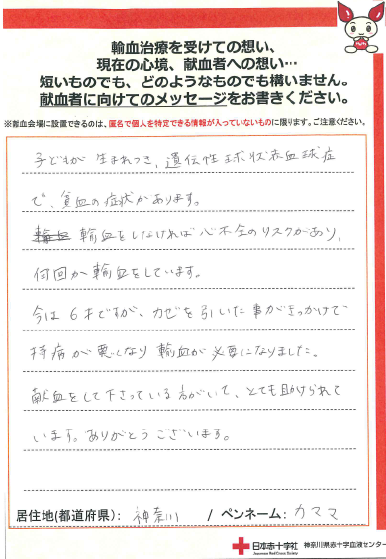 輸血治療を受けての想い、
現在の心境、献血者への想い…
短いものでも、どのようなものでも構いません。
献血者に向けてのメッセージをお書きください。
※献血会場に設置できるのは、匿名で個人を特定できる情報が入っていないものに限ります。ご注意ください。
子どもが生まれつき、遺伝性球状赤血球症
で、貧血の症状があります。
輸血をしなければ心不全のリスクがあり、
何回か輸血をしています。
今は6才ですが、カゼを引いた事がきっかけで
持病が悪くなり輸血が必要になりました。
献血をして下さっている方がいて、とても助けられて
います。ありがとうございます。
居住地(都道府県): 神奈川 / ペンネーム: カママ
日本赤十字社 神奈川県赤十字血液センター
Japanese Red Cross Society